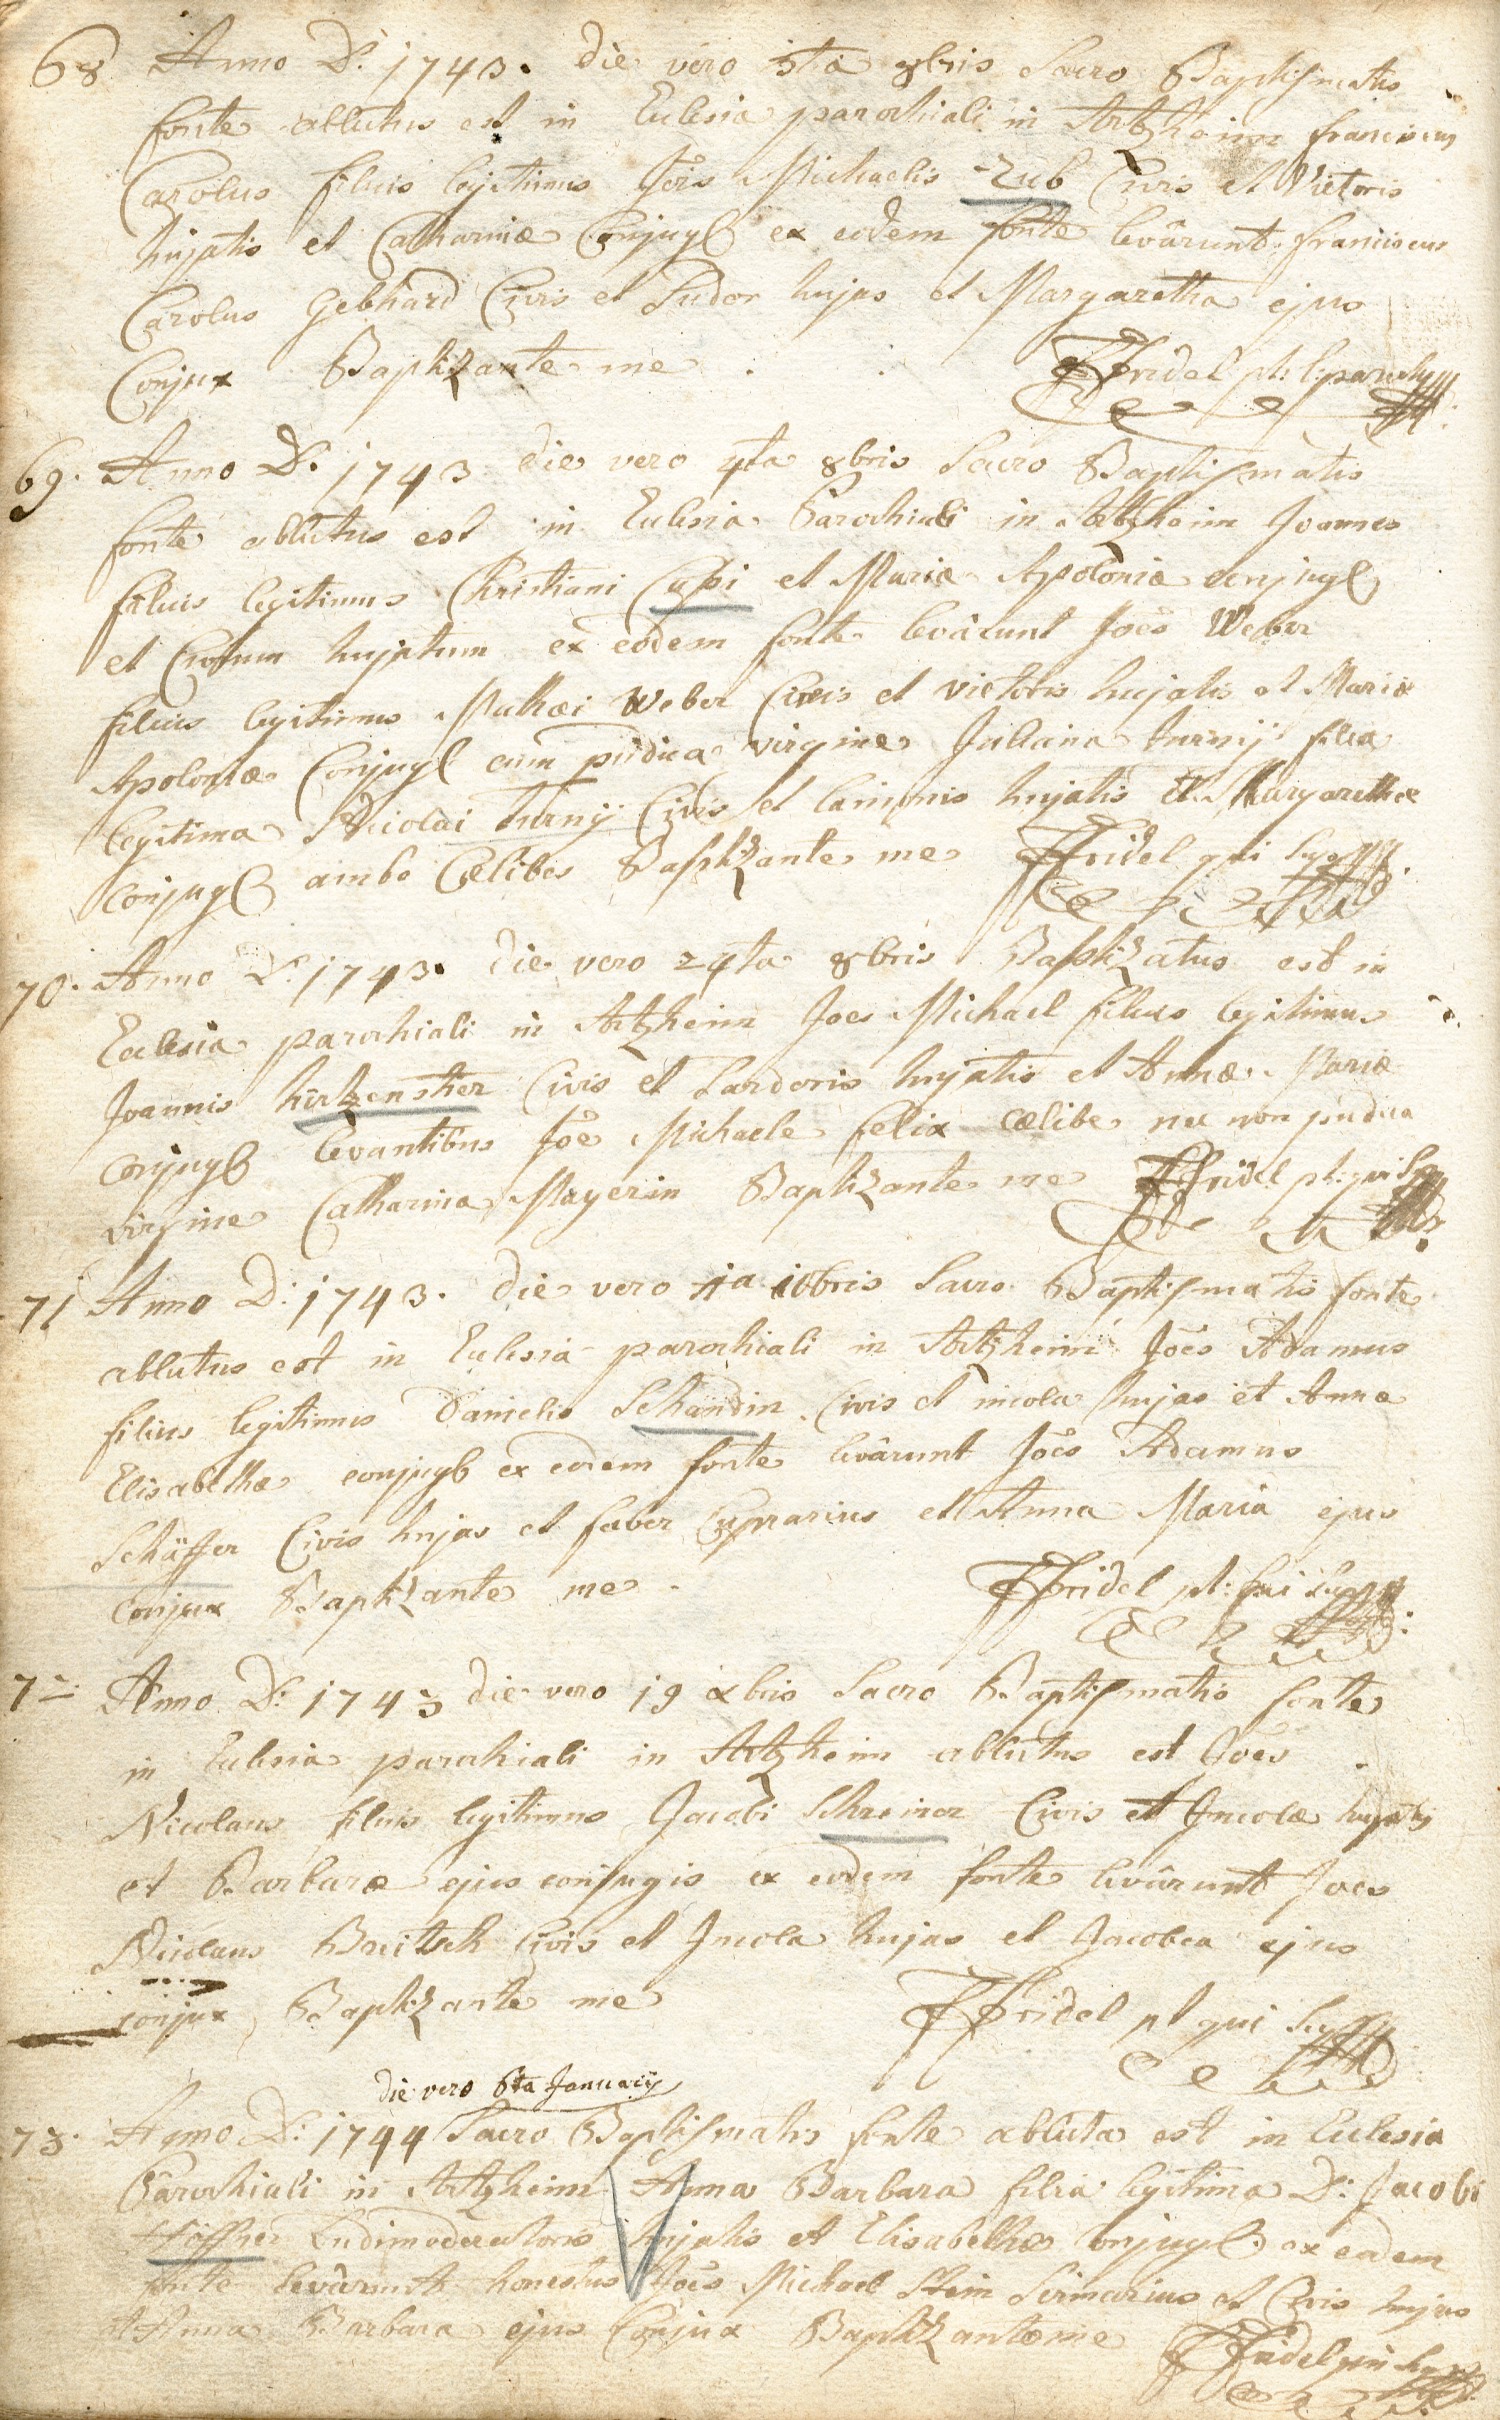 68 Anno D: 1743. die vero 3ta 8bris Sacro Baptismatis
fonte ablutus est in Eclesia parochiali in Artzheim franciscus
Carolus filius legitimus Jois Michaelis Zub Civis et Vietoris
hujatis et Catharinæ Conjug ex eodem fonte levârunt franciscus
Carolus Gebhard Civis et Sudor hujas et Margaretha ejus
Conjux Baptizante me . . FFridel pt: parochg
69. Anno D. 1743 die vero 4ta 8bris Sacro Baptismatis
fonte ablutus est in Eclesia Parochiali in Artzheim Joannes
filius legitimus Christiani Cupi et Mariæ Apoloniæ conjug
et Civium hujatum ex eodem fonte levârunt Joes Weber
filius legitimus Mathæi Weber Civis et vietoris hujatis et Mariæ
Apoloniæ Conjug cum pudica virgine Juliana Turnij filia
legitima Nicolai turnij Civis et lanionis hujatis et Margarethæ
conjug ambo Cælibes Baptizante me FFridel qui
70. Anno D. 1743. die vero 24ta 8bris Baptizatus est in
Eclesia parochiali in Artzheim Joes Michael filius legitimus
Joannis hirtzenstier Civis et Sardoris hujatis et Annæ Mariæ
conjug levantibus Joe Michaele felix cælibe nec non pudica
virgine Catharina Mayerin Baptizante me FFridel pt: qui
71 Anno D: 1743. die vero 1a 10bris Sacro Baptismatis fonte
ablutus est in Eclesia parochiali in Artzheim Joes Adamus
filius legitimus Danielis Schandin Civis et incola hujas et Anna
Elisabethæ conjug ex eodem fonte levârunt Joes Adamus
Schäffer Civis hujas et faber Cuprarius et Anna Maria ejus
Conjux Baptizante me . FFridel pt: qui
72. Anno D: 1743 die vero 19 xbris Sacro Baptismatis fonte
in Eclesia parochiali in Artzheim ablutus est Joes
Nicolaus filius legitimus Jacobi Schreiner Civis et Incolæ hujatis
et Barbaræ ejus conjugis ex eodem fonte levârunt Joes
Nicolaus Breitsch Civis et Incola hujas et Jacobea ejus
conjux Baptizante me FFridel pt qui
die vero 6ta Januarij
73. Anno D: 1744 Sacro Baptismatis fonte abluta est in Eclesia
Parochiali in Artzheim Anna Barbara filia legitima D: Jacobi
Höffne Ludimoderatoris hujatis et Elisabethæ Conjug. ex eodem
fonte levârunt honestus Joes Michael Stein Serinarius et Civis hujas
et Anna Barbara ejus Conjux Baptizante me FFridel qui